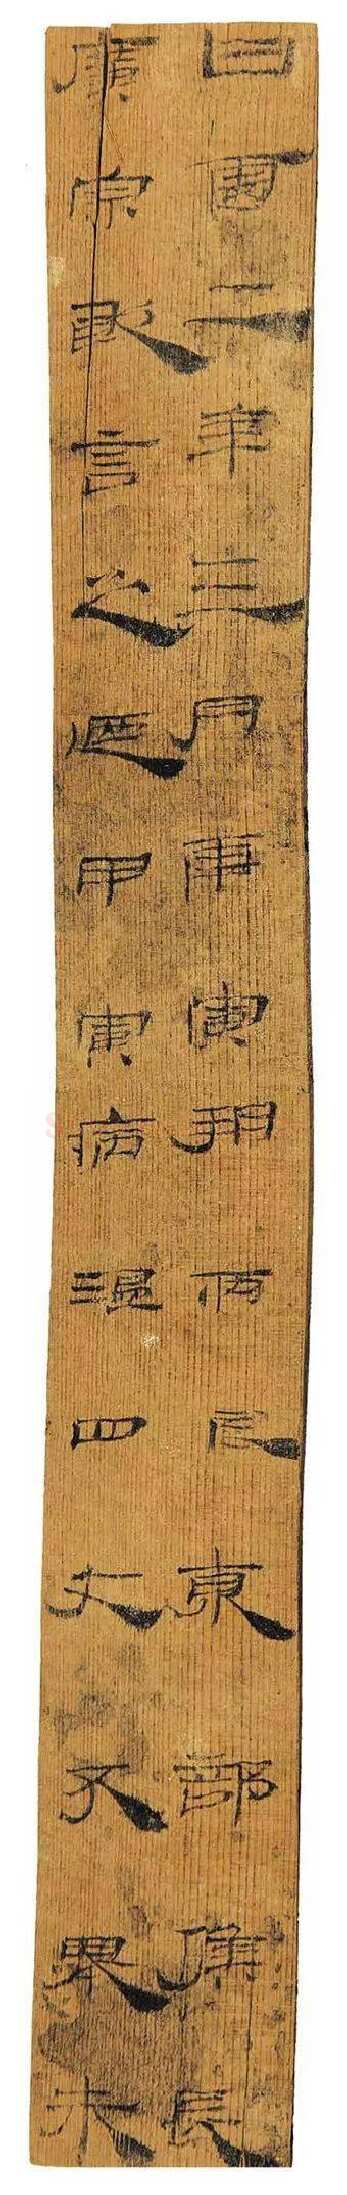 國二年三月庚寅朔丙辰東部候長
廣宗敢言之迺甲寅病溫四支不舉未